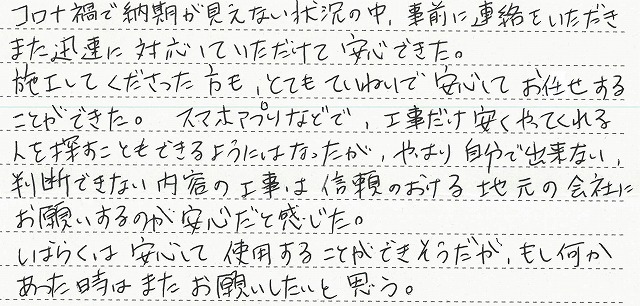 コロナ禍で納期が見えない状況の中、事前に連絡をいただき
また迅速に対応していただけて安心できた。
施工してくださった方も、とてもていねいで安心してお任せする
ことができた。スマホアプリなどで、工事だけ安くやってくれる
人を探すこともできるようにはなったが、やはり自分で出来ない、
判断できない内容の工事は信頼のおける地元の会社に
お願いするのが安心だと感じた。
しばらくは安心して使用することができそうだが、もし何か
あった時はまたお願いしたいと思う。